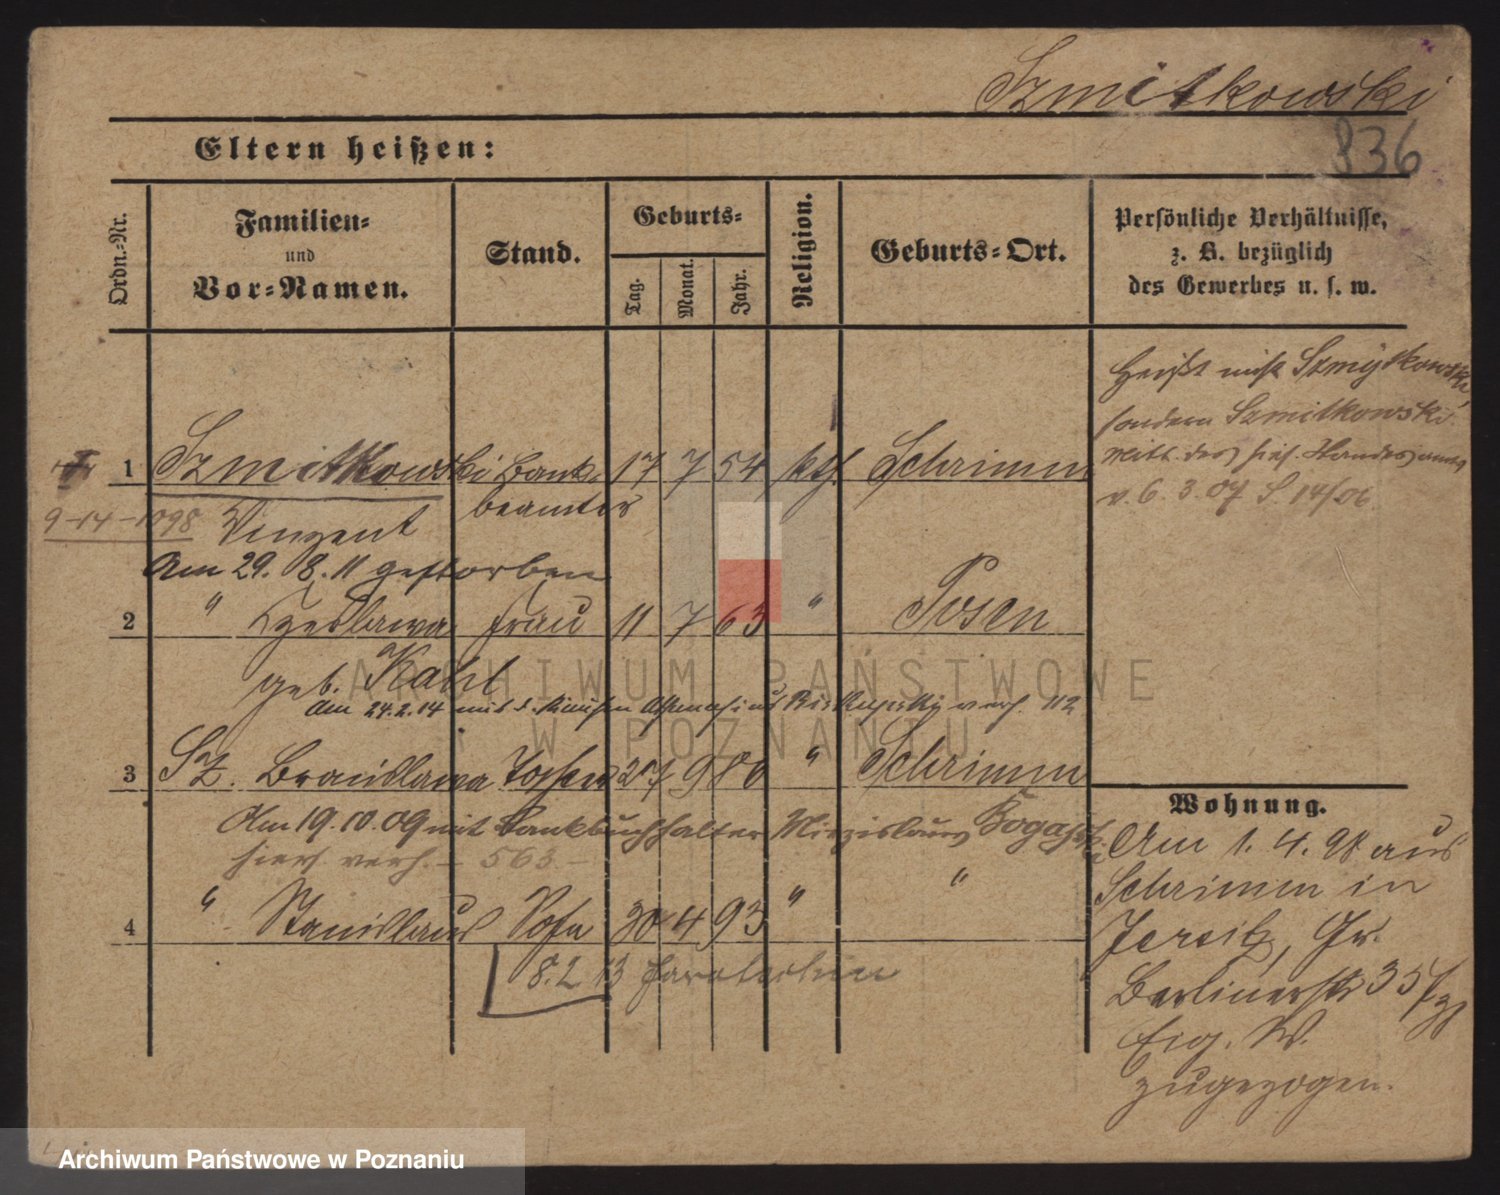 Szmitkowski
836
Eltern heißen:
Ordn.-Nr.
Familien-
und
Vor-Namen.
Stand.
Geburts-
Tag.
Monat.
Jahr.
Religion.
Geburts-Ort.
Persönliche Verhältnisse,
z. B. bezüglich
des Gewerbes u. s. w.
Heißt nicht Szmytkowski,
sondern Szmitkowski
v. 6. 3. 07 S. 14/06
1 Szmitkowski Bank- 17 7 54 kth. Schrimm
beamter
9-14-1898 Vinzent
Am 29. 8. 11 gestorben
2 " Czeslawa Frau 11 7 63 " Posen
geb. Kahl
Am 24.2.14 mit d. verh. 112
3 Sz. Bronislawa Tochter 27 9 86 " Schrimm
Am 19.10.09 mit Bankbuchhalter Miezislaus
hier verh. - 563. -
4 " Stanislaus Sohn 30 4 93 " "
8.2 13
Wohnung.
Am 1. 4. 98 aus
Schrimm in
Jersitz, Gr.
Berlinerstr 35
Eig. W.
zugezogen.
ARCHIWUM PAŃSTWOWE
W POZNANIU
Archiwum Państwowe w Poznaniu